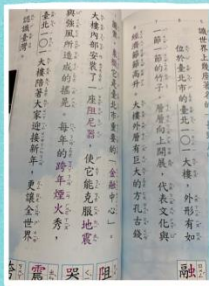 識世界上幾座著名的
位於臺北市的臺北一〇一大樓，外形有如
一節一節的竹子，層層向上開展，代表文化與
經濟節節高升。大樓外層有巨大的方孔古錢
圖案，象徵它是臺北市重要的「金融中心」。
大樓內部安裝了一座阻尼器，使它能克服地震
與強風所造成的搖晃。每年的跨年煙火秀，
臺北一〇一大樓陪著大家迎接新年，更讓全世界
認識臺灣。
融
阻
哭
震